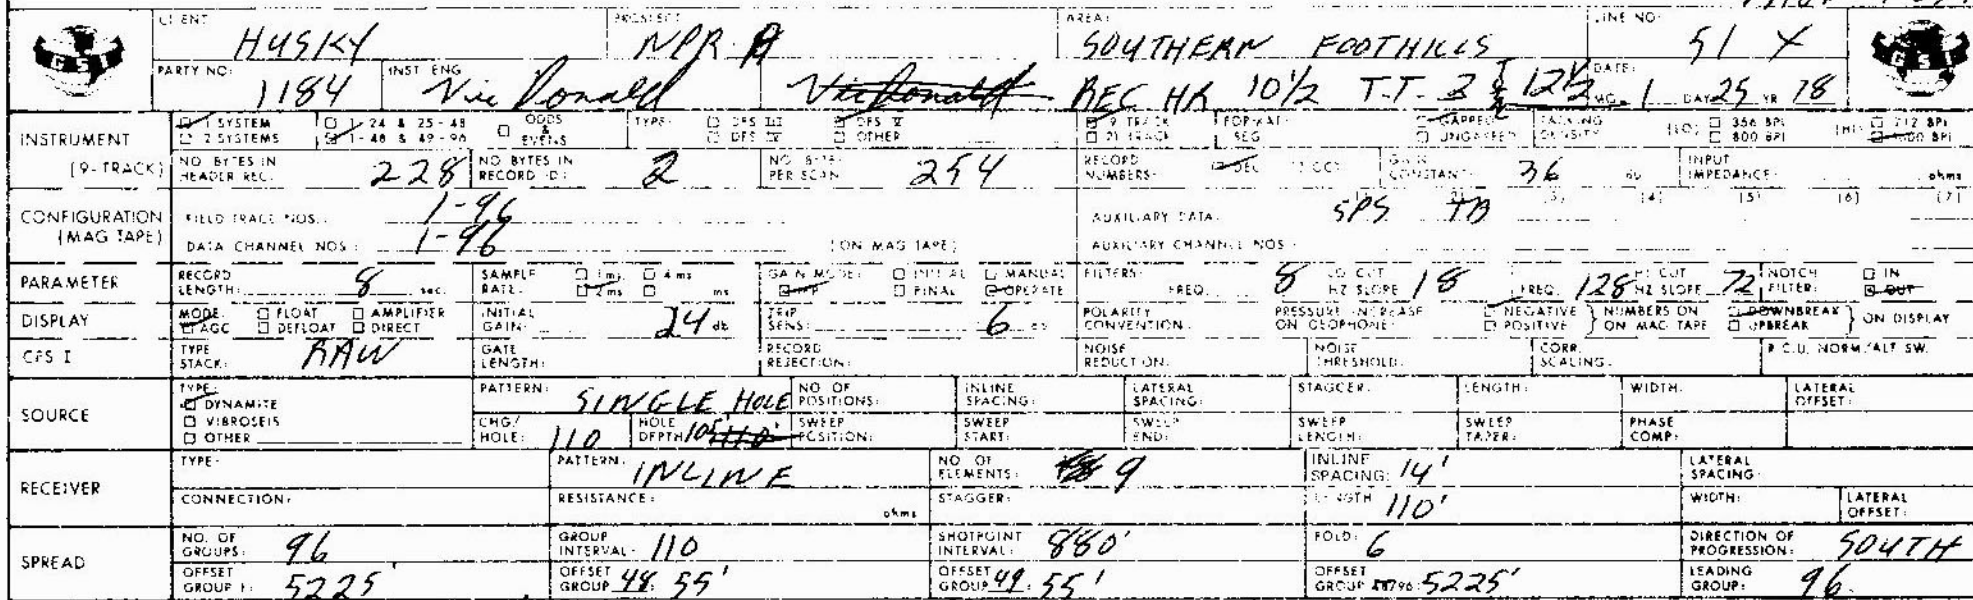 CLIENT: HUSKY PROSPECT: NPR A AREA: SOUTHERN FOOTHILLS LINE NO: 51 X
GSI
PARTY NO: 1184 INST. ENG. Vic Donald Vic Donald REC HR 10 1/2 T.T. 3 12 1/2 DATE: MO. 1 DAY 25 YR 78
GSI
INSTRUMENT (9-TRACK) 1 SYSTEM 1-24 & 25-48 ODDS & EVENS TYPE: DFS III DFS V 9 TRACK FORMAT: GAPPED PACKING DENSITY (LO) 356 BPI (HI) 712 BPI
2 SYSTEMS 1-48 & 49-96 DFS IV OTHER 21 TRACK SEG UNGAPPED 800 BPI 1600 BPI
NO. BYTES IN HEADER REC: 228 NO BYTES IN RECORD ID: 2 NO. BYTES PER SCAN: 254 RECORD NUMBERS: DEC OCT GAIN CONSTANT: 36 db INPUT IMPEDANCE: ohms
CONFIGURATION (MAG TAPE) FIELD TRACE NOS.: 1-96 AUXILIARY DATA: SPS TB (3) (4) (5) (6) (7)
DATA CHANNEL NOS: 1-96 (ON MAG TAPE) AUXILIARY CHANNEL NOS:
PARAMETER RECORD LENGTH: 8 sec. SAMPLE RATE: 1 ms 4 ms 2 ms ms GAIN MODE: INITIAL MANUAL IFP FINAL OPERATE FILTERS: FREQ. 8 LO CUT HZ SLOPE 18 FREQ. 128 HI CUT HZ SLOPE 72 NOTCH FILTER: IN OUT
DISPLAY MODE: FLOAT AMPLIFIER AGC DEFLOAT DIRECT INITIAL GAIN: 24 db TRIP SENS: 6 db POLARITY CONVENTION: PRESSURE INCREASE ON GEOPHONE: NEGATIVE POSITIVE NUMBERS ON ON MAG TAPE DOWNBREAK UPBREAK ON DISPLAY
CFS I TYPE STACK: RAW GATE LENGTH: RECORD REJECTION: NOISE REDUCTION: NOISE THRESHOLD: CORR. SCALING: R.C.U. NORM/ALT SW.
SOURCE TYPE: DYNAMITE VIBROSEIS OTHER PATTERN: SINGLE HOLE NO OF POSITIONS: INLINE SPACING: LATERAL SPACING: STAGGER: LENGTH: WIDTH: LATERAL OFFSET:
CHG/HOLE: 110 HOLE DEPTH 105' 110' SWEEP POSITION: SWEEP START: SWEEP END: SWEEP LENGTH: SWEEP TAPER: PHASE COMP:
RECEIVER TYPE: PATTERN: INLINE NO OF ELEMENTS: 9 INLINE SPACING: 14' LATERAL SPACING:
CONNECTION: RESISTANCE: ohms STAGGER: LENGTH 110' WIDTH: LATERAL OFFSET:
SPREAD NO. OF GROUPS: 96 GROUP INTERVAL: 110 SHOTPOINT INTERVAL: 880' FOLD: 6 DIRECTION OF PROGRESSION: SOUTH
OFFSET GROUP 1: 5225' OFFSET GROUP 48: 55' OFFSET GROUP 49: 55' OFFSET GROUP 96: 5225' LEADING GROUP: 96.